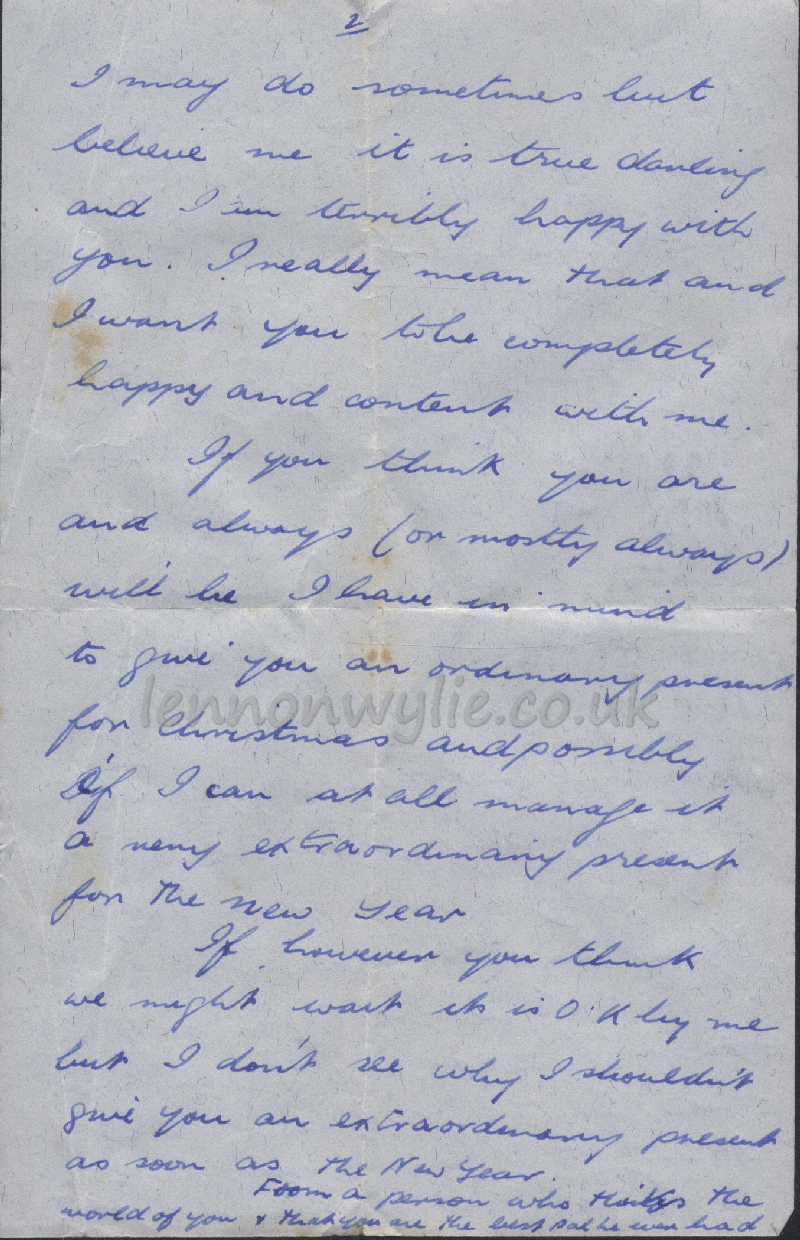 2
I may do sometimes but
believe me it is true darling
and I am terribly happy with
you. I really mean that and
I want you to be completely
happy and content with me.
If you think you are
and always (or mostly always)
will be I have in mind
to give you an ordinary present
lennonwylie.co.uk
for Christmas and possibly
if I can at all manage it
a very extraordinary present
for the New Year
If however you think
we might wait it is O.K by me
but I don't see why I shouldn't
give you an extraordinary present
as soon as the New Year.
From a person who thinks the
world of you & that you are the best pal he ever had